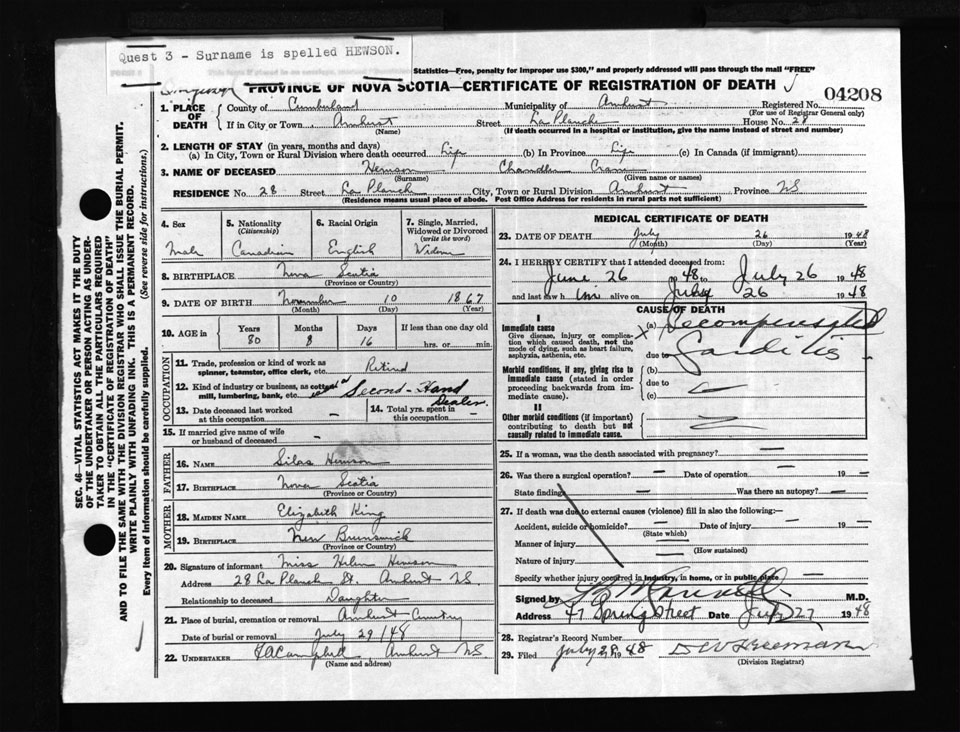 Quest 3 - Surname is spelled HEWSON.
Statistics—Free, penalty for improper use $300," and properly addressed will pass through the mail "FREE"
PROVINCE OF NOVA SCOTIA—CERTIFICATE OF REGISTRATION OF DEATH
04208
1. PLACE OF DEATH
County of Cumberland Municipality of Amherst Registered No.
(For use of Registrar General only)
If in City or Town Amherst Street La Planch House No. 28
(Name) (If death occurred in a hospital or institution, give the name instead of street and number)
2. LENGTH OF STAY (in years, months and days)
(a) In City, Town or Rural Division where death occurred Life (b) In Province Life (c) In Canada (if immigrant)
3. NAME OF DECEASED Hewson Chandler Crane
(Surname) (Given name or names)
RESIDENCE No. 28 Street La Planch City, Town or Rural Division Amherst Province NS
(Residence means usual place of abode. Post Office Address for residents in rural parts not sufficient)
SEC. 46—VITAL STATISTICS ACT MAKES IT THE DUTY
OF THE UNDERTAKER OR PERSON ACTING AS UNDER-
TAKER TO OBTAIN ALL THE PARTICULARS REQUIRED
IN THE "CERTIFICATE OF REGISTRATION OF DEATH"
AND TO FILE THE SAME WITH THE DIVISION REGISTRAR WHO SHALL ISSUE THE BURIAL PERMIT.
WRITE PLAINLY WITH UNFADING INK. THIS IS A PERMANENT RECORD.
Every item of information should be carefully supplied. (See reverse side for instructions.)
4. Sex
Male
5. Nationality
(Citizenship)
Canadian
6. Racial Origin
English
7. Single, Married,
Widowed or Divorced
(write the word)
Widow
8. BIRTHPLACE Nova Scotia
(Province or Country)
9. DATE OF BIRTH November 10 1867
(Month) (Day) (Year)
10. AGE in Years Months Days If less than one day old
80 8 16 hrs. or min.
OCCUPATION
11. Trade, profession or kind of work as
spinner, teamster, office clerk, etc. Retired
12. Kind of industry or business, as cotton
mill, lumbering, bank, etc. Second-Hand
Dealer
13. Date deceased last worked
at this occupation -
14. Total yrs. spent in
this occupation -
15. If married give name of wife
or husband of deceased -
FATHER
16. NAME Silas Hewson
17. BIRTHPLACE Nova Scotia
(Province or Country)
MOTHER
18. MAIDEN NAME Elizabeth King
19. BIRTHPLACE New Brunswick
(Province or Country)
20. Signature of informant Miss Helen Hewson
Address 28 La Planch St. Amherst NS.
Relationship to deceased Daughter
21. Place of burial, cremation or removal Amherst Cemetery
Date of burial or removal July 29/48
22. UNDERTAKER FA Campbell, Amherst NS.
(Name and address)
MEDICAL CERTIFICATE OF DEATH
23. DATE OF DEATH July 26 1948
(Month) (Day) (Year)
24. I HEREBY CERTIFY that I attended deceased from:
June 26 1948 to July 26 1948
and last saw him alive on July 26 1948
CAUSE OF DEATH
I
Immediate cause
Give disease, injury or complica-
tion which caused death, not the
mode of dying, such as heart failure,
asphyxia, asthenia, etc.
(a) Decompensated
due to Carditis
Morbid conditions, if any, giving rise to
immediate cause (stated in order
proceeding backwards from im-
mediate cause).
(b)
due to
(c)
II
Other morbid conditions (if important)
contributing to death but not
causally related to immediate cause.
25. If a woman, was the death associated with pregnancy? -
26. Was there a surgical operation? - Date of operation - 19 -
State findings - Was there an autopsy? -
27. If death was due to external causes (violence) fill in also the following:—
Accident, suicide or homicide? - Date of injury - 19 -
(State which)
Manner of injury
(How sustained)
Nature of injury
Specify whether injury occurred in industry, in home, or in public place
Signed by M.D.
Address 47 Spring Street Date July 27 1948
28. Registrar's Record Number
29. Filed July 28 1948
(Division Registrar)